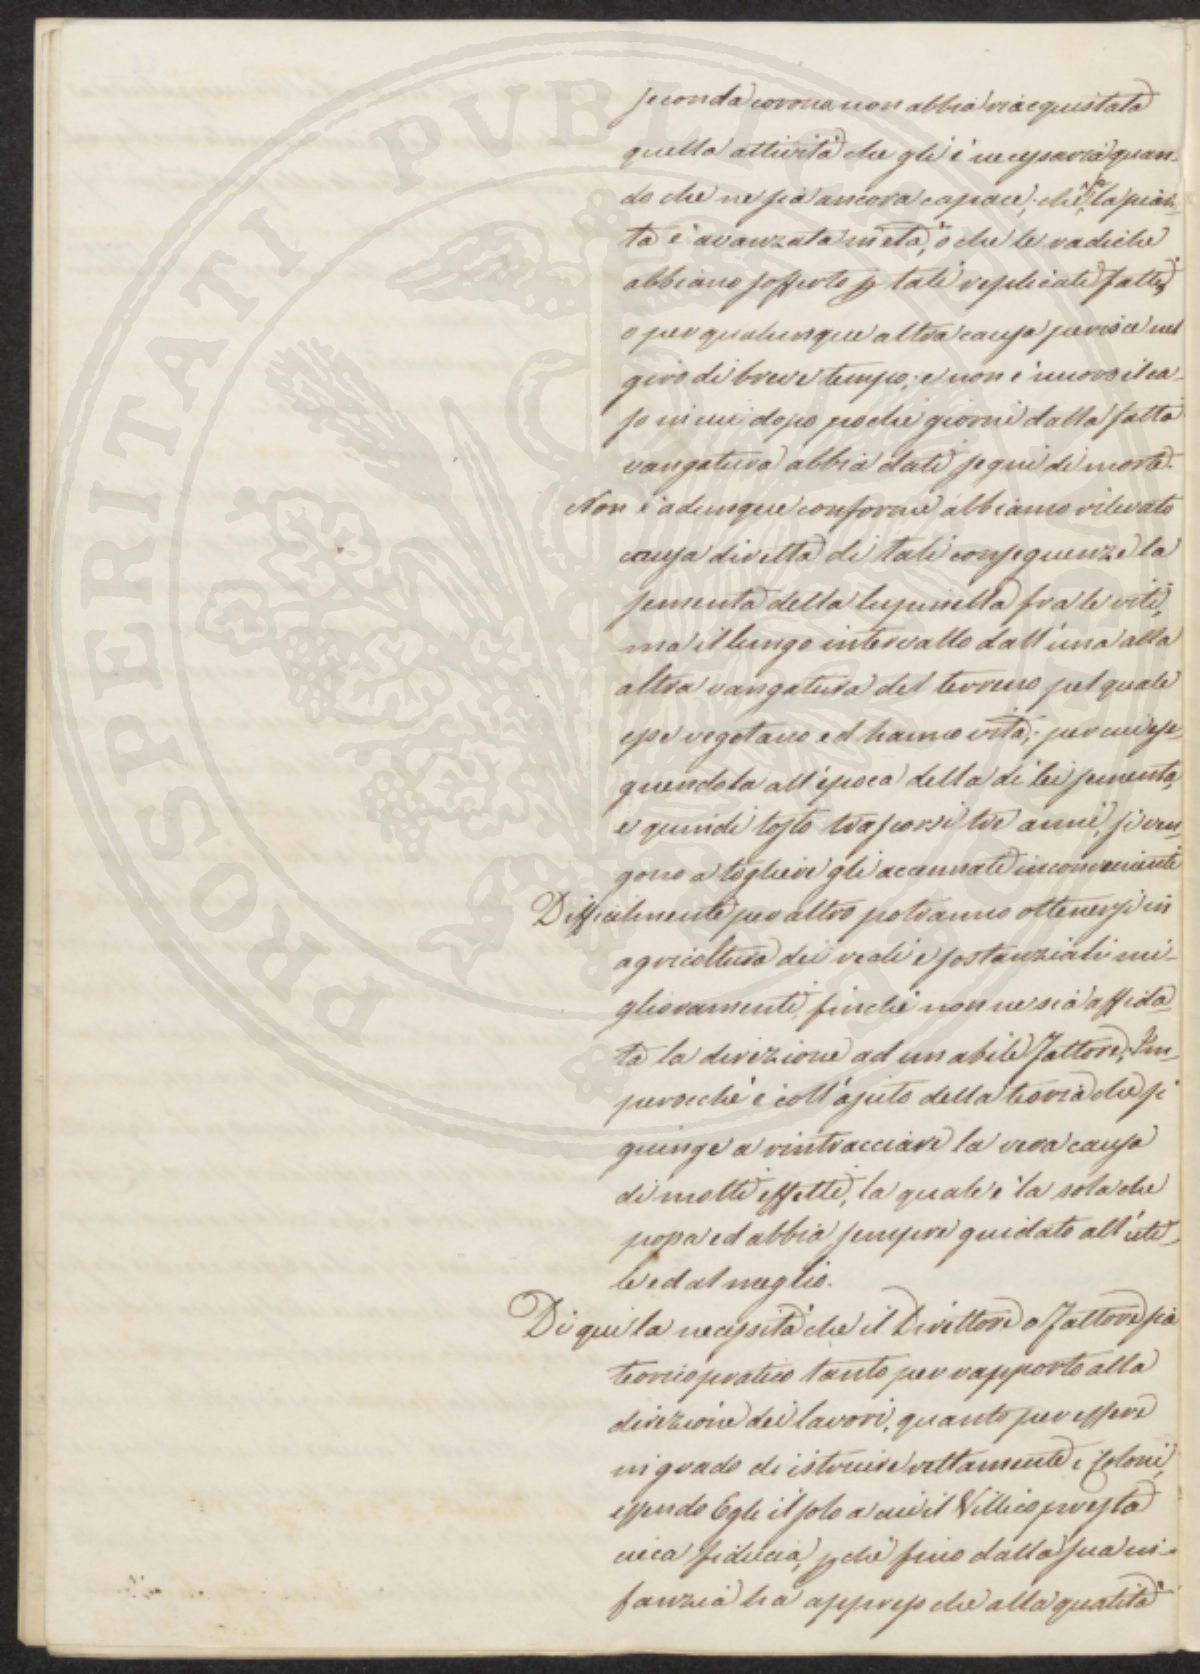 seconda corona non abbia riacquistata
quella attività che gli è necessaria quan-
do che ne sia ancora capace; che se la pian-
ta è avanzata in età, o che le radiche
abbiano sofferto p tali replicati fatti,
o per qualunque altra causa perisce nel
giro di breve tempo; e non è nuovo il ca-
so in cui dopo pochi giorni dalla fatta
vangatura abbia dati segni di morte.
Non è adunque conforme abbiamo rilevato
causa diretta di tali conseguenze la
sementa della lupinella fra le viti,
ma il lungo intervallo dall'una alla
altra vangatura del terreno sul quale
esse vegetano ed hanno vita; per cui ese-
guendola all'epoca della di lei sementa,
e quindi tosto trascorsi tre anni, si ven-
gono a togliere gli accennati inconvenienti
Difficilmente per altro potranno ottenersi in
agricoltura dei reali e sostanziali mi-
glioramenti, finchè non ne sia affida-
ta la direzione ad un abile Fattore; Im-
perocchè è coll'ajuto della teoria che si
giunge a rintracciare la vera causa
di molti effetti, la quale è la sola che
possa ed abbia sempre guidato all'uti-
le ed al meglio.
Di qui la necessità che il Direttore o Fattore sia
teorico pratico tanto per rapporto alla
direzione dei lavori, quanto per essere
in grado di istruire rettamente i Coloni,
essendo Egli il solo a cui il Villico presta
cieca fiducia, pchè fino dalla sua in-
fanzia ha appreso che alla qualità
PROSPERITATI PVBLICAE